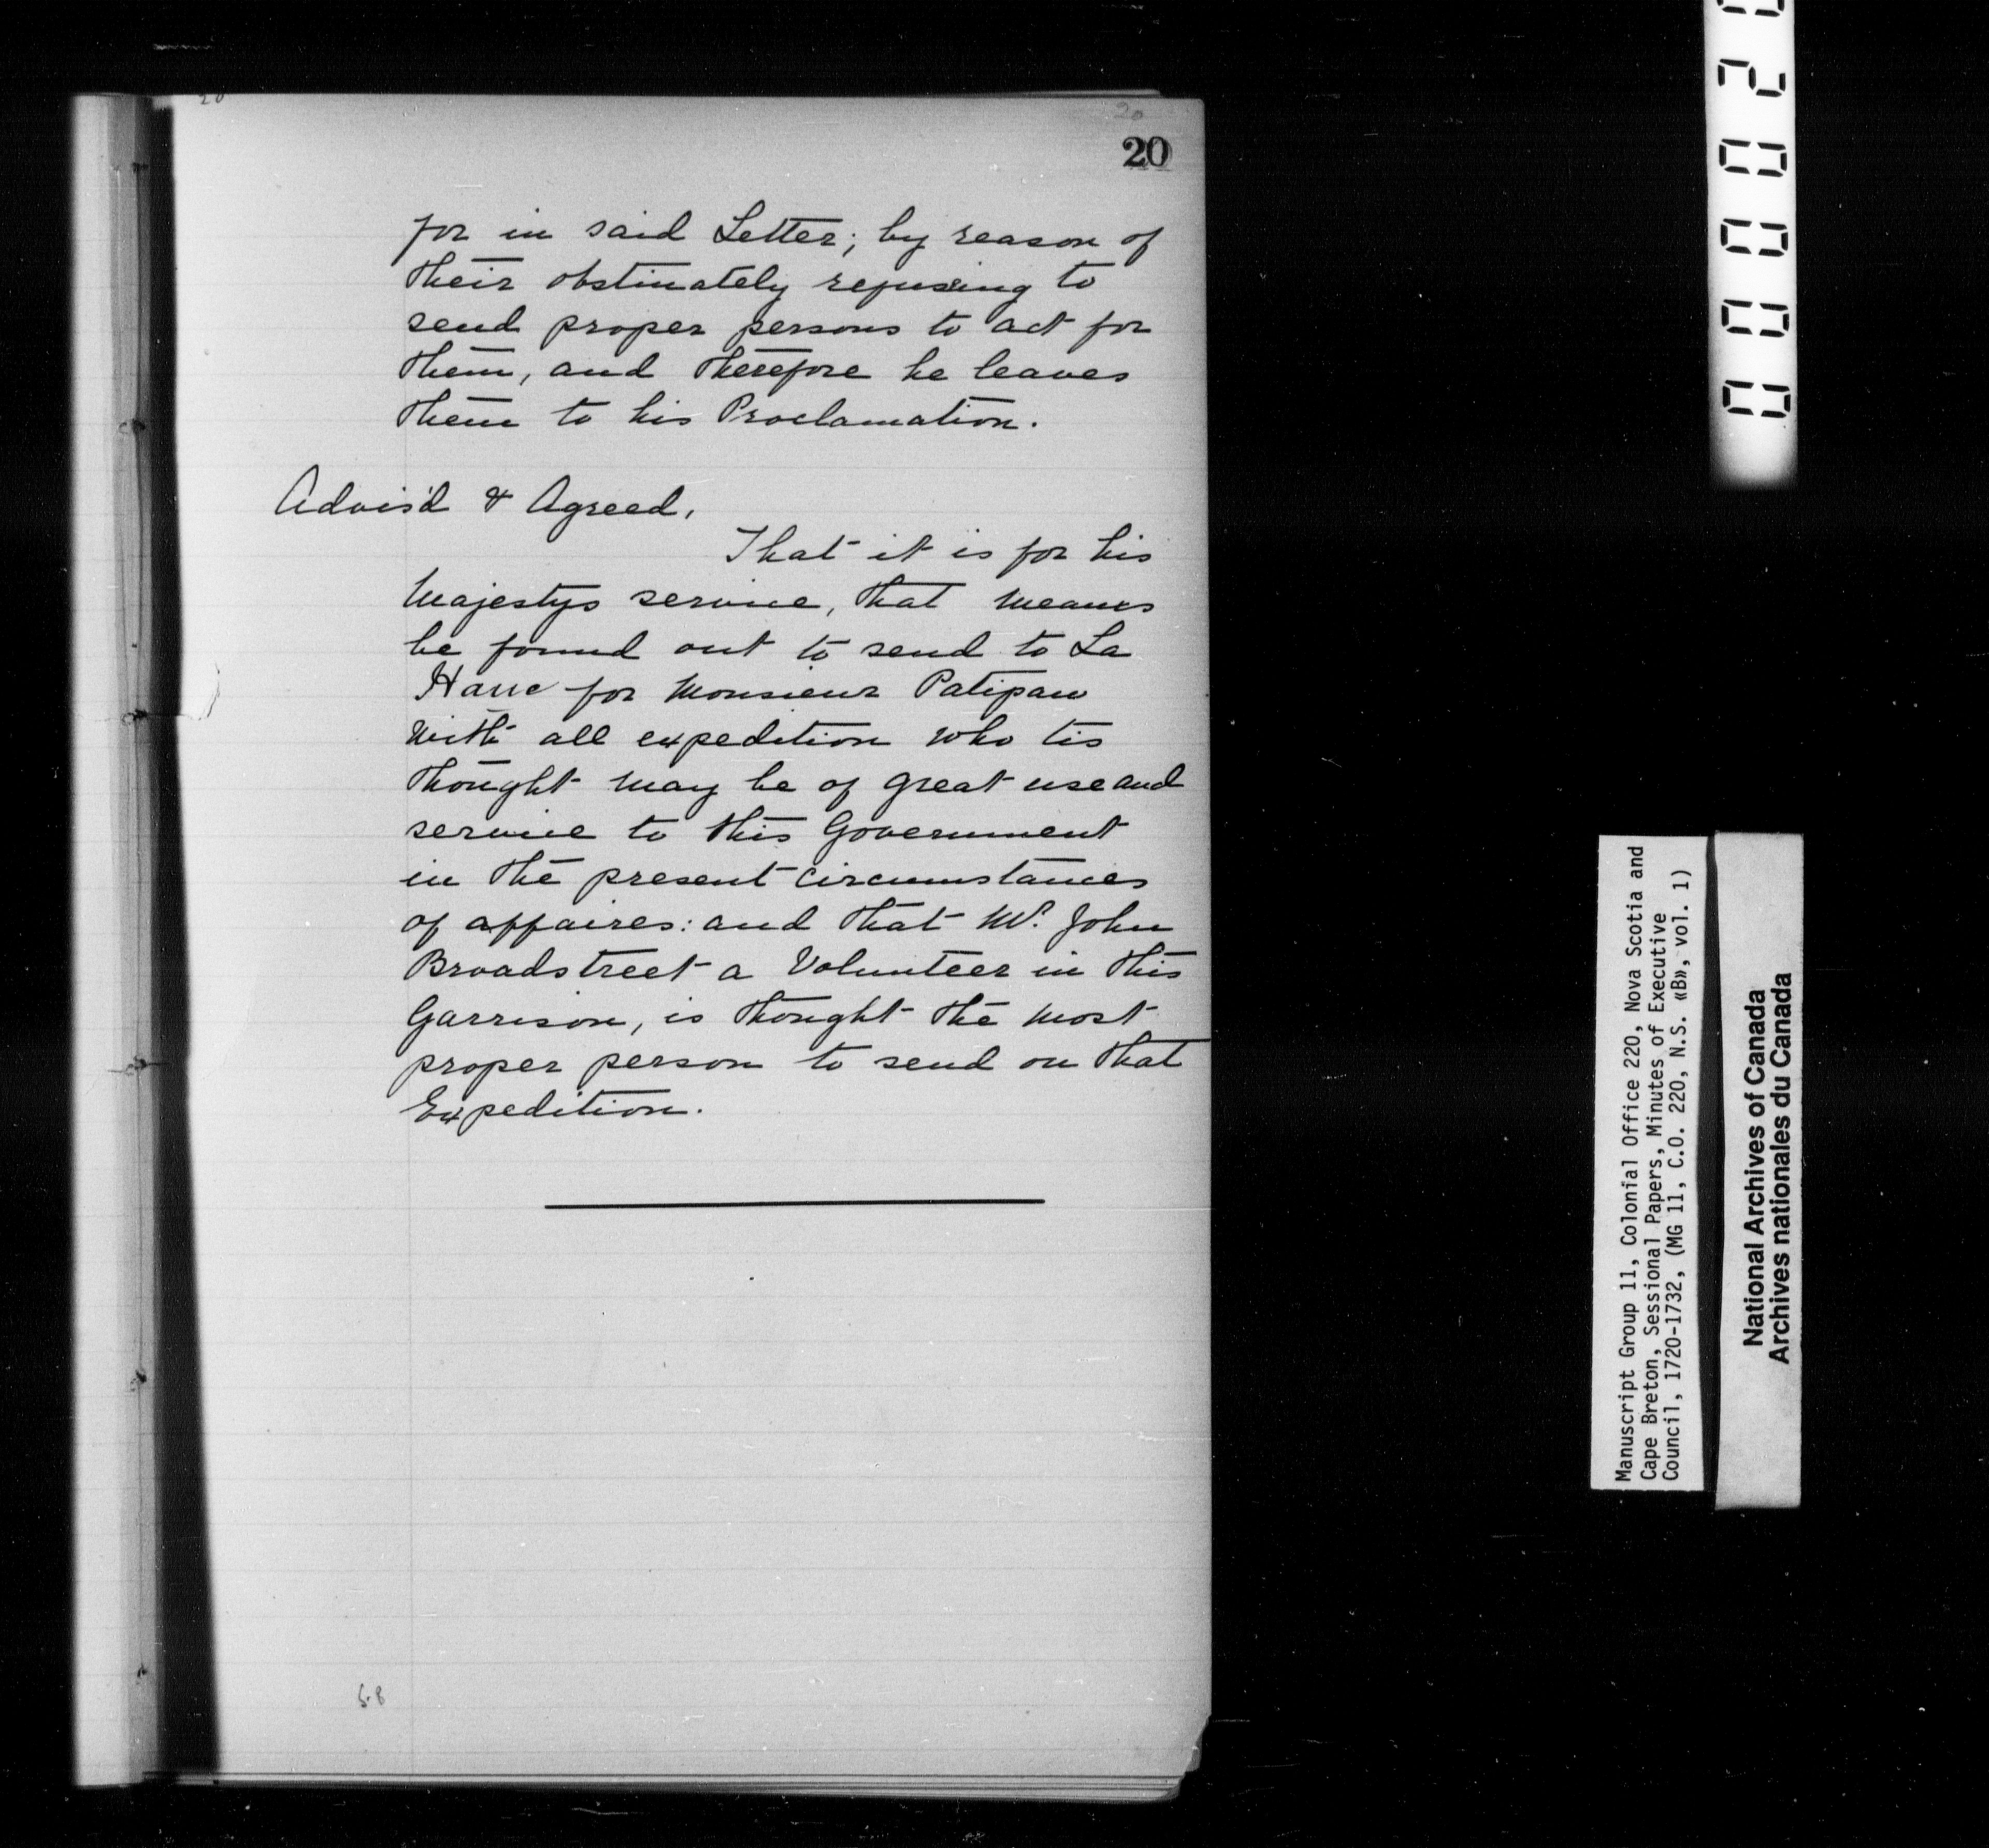 20
20
20
for in said Letter; by reason of
their obstinately refusing to
send proper persons to act for
them, and therefore he leaves
them to his Proclamation.
Advis'd & Agreed,
That it is for his
Majestys service, that means
be found out to send to La
Have for Monsieur Patipaw
with all expedition who tis
thought may be of great use and
service to this Government
in the present circumstances
of affaires: and that Mr. John
Broadstreet a Volunteer in this
Garrison, is thought the most
proper person to send on that
Expedition.
Manuscript Group 11, Colonial Office 220, Nova Scotia and
Cape Breton, Sessional Papers, Minutes of Executive
Council, 1720-1732, (MG 11, C.O. 220, N.S. «B», vol. 1)
National Archives of Canada
Archives nationales du Canada